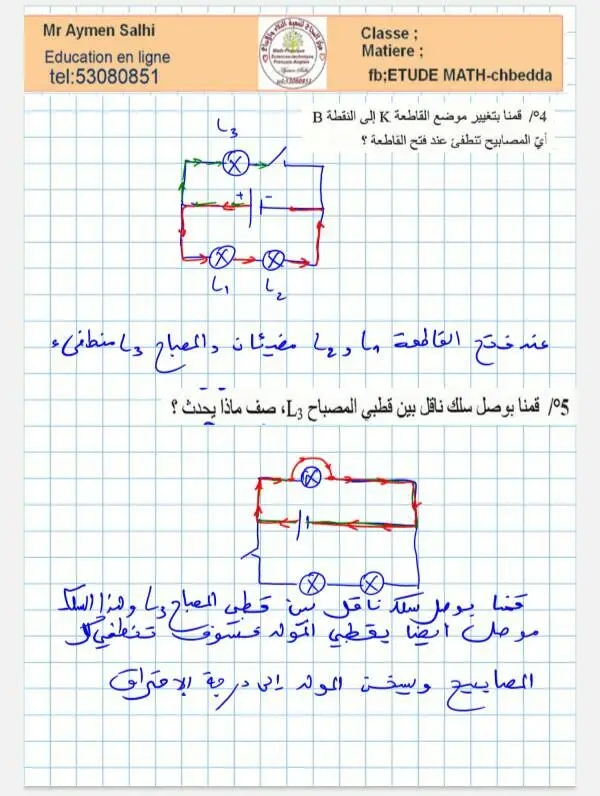 Mr Aymen Salhi
Education en ligne
tel:53080851
Classe ;
Matiere ;
fb;ETUDE MATH-chbedda
4°/ قمنا بتغيير موضع القاطعة K إلى النقطة B
أيّ المصابيح تنطفئ عند فتح القاطعة ؟
L3
+ -
L1 L2
عند فتح القاطعة L1 و L2 مضيئان والمصباح L3 منطفىء
5°/ قمنا بوصل سلك ناقل بين قطبي المصباح L3، صف ماذا يحدث ؟
قمنا بوصل سلك ناقل بين قطبي المصباح L3 وهذا السلك
موصل أيضا بقطبي المولد فسوف تنطفئ كل
المصابيح ويسخن المولد إلى درجة الإحتراق